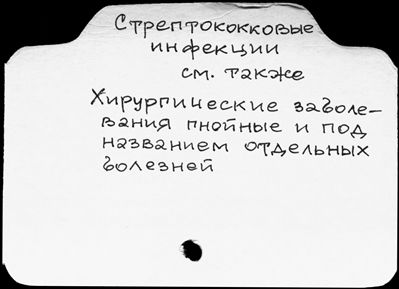 Стрептококковые
инфекции
см. также
Хирургические заболе-
вания гнойные и под
названием отдельных
болезней